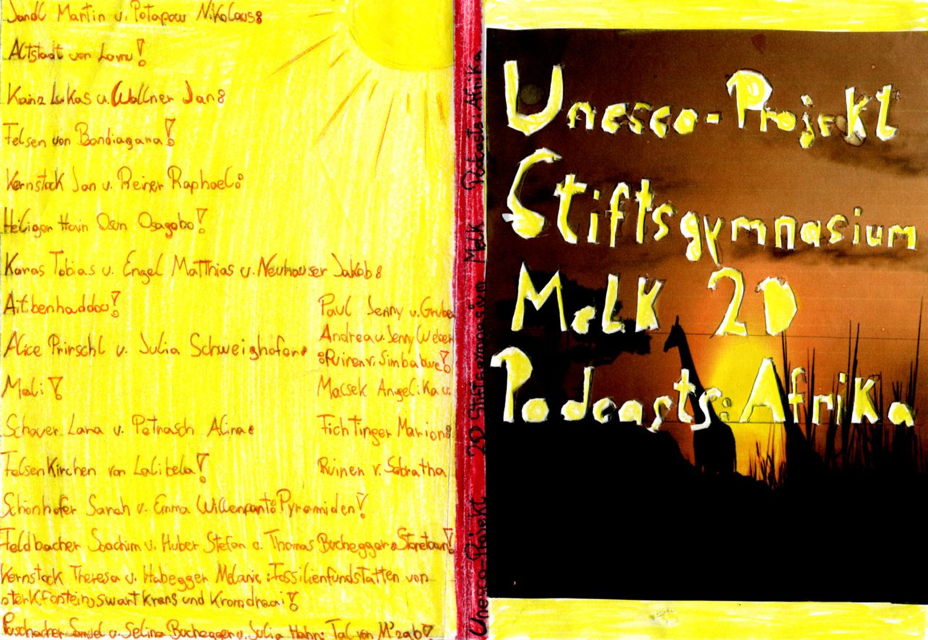 Jandl Martin u. Potapow Nikolaus:
Altstadt von Lamu!
Kainz Lukas u. Wallner Jan:
Felsen von Bandiagara!
Kernstock Jan u. Reiner Raphael:
Heiliger Hain Osun Osogobo!
Karas Tobias u. Engel Matthias u. Neuhauser Jakob:
Aitbenhaddou!
Alice Prirschl u. Julia Schweighofer:
Mali!
Schauer Lara u. Petrasch Alina:
Felsenkirchen von Lalibela!
Schönhofer Sarah u. Emma Willenpart: Pyramiden!
Feldbacher Joachim u. Huber Stefan u. Thomas Buchegger: Stonetown!
Kernstock Theresa u. Habegger Melanie: Fossilienfundstätten von
sterkfontein, swartkrans und Kromdraai!
Samuel u. Selina Buchegger u. Julia Hahn: Tal von M'zab!
Paul Jenny u. Gruber
Andrea u. Jenny Weber
:Ruinen v. Simbabwe!
Macsek Angelika u.
Fichtinger Marion:
Ruinen v. Sabratha
Unesco-Projekt 2D Stiftsgymnasium Melk Podcasts: Afrika
Unesco-Projekt
Stiftsgymnasium
Melk 2D
Podcasts: Afrika